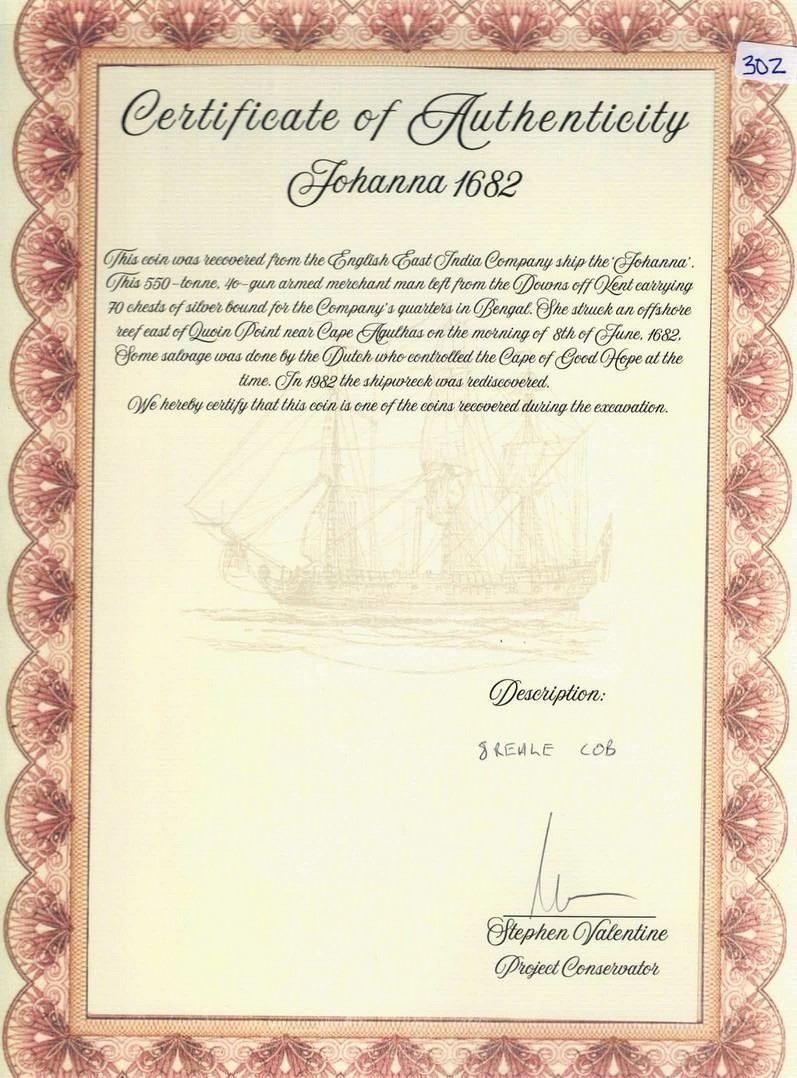 302
Certificate of Authenticity
Johanna 1682
This coin was recovered from the English East India Company ship the 'Johanna'.
This 550-tonne, 40-gun armed merchant man left from the Downs off Kent carrying
70 chests of silver bound for the Company's quarters in Bengal. She struck an offshore
reef east of Quoin Point near Cape Agulhas on the morning of 8th of June, 1682.
Some salvage was done by the Dutch who controlled the Cape of Good Hope at the
time. In 1982 the shipwreck was rediscovered.
We hereby certify that this coin is one of the coins recovered during the excavation.
Description:
8 REALE COB
Stephen Valentine
Project Conservator